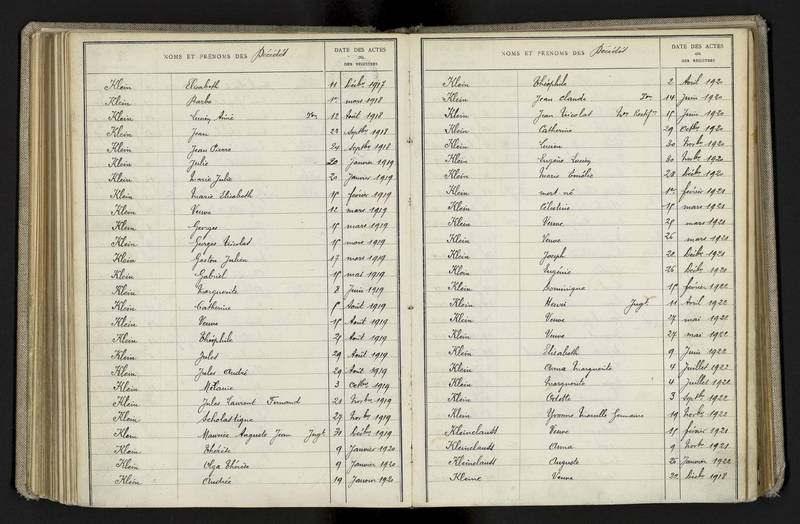 NOMS ET PRÉNOMS DES Décédés
DATE DES ACTES
OU
DES REGISTRES
Klein Elisabeth 11 Décbre 1917
Klein Barbe 1er mars 1918
Klein Lucien Aimé Trn 12 Août 1918
Klein Jean 23 Septbre 1918
Klein Jean Pierre 24 Septbre 1918
Klein Julie 20 Janvier 1919
Klein Marie Julie 20 Janvier 1919
Klein Marie Elisabeth 15 février 1919
Klein Veuve 12 mars 1919
Klein Georges 15 mars 1919
Klein Georges Nicolas 15 mars 1919
Klein Gaston Julien 17 mars 1919
Klein Gabriel 15 mai 1919
Klein Marguerite 8 Juin 1919
Klein Catherine Août 1919
Klein Veuve 15 Août 1919
Klein Théophile 21 Août 1919
Klein Jules 29 Août 1919
Klein Jules André 29 Août 1919
Klein Mélanie 3 Octbre 1919
Klein Jules Laurent Fernand 20 Novbre 1919
Klein Scholastique 27 Novbre 1919
Klein Maurice Auguste Jean Jugt 30 Décbre 1919
Klein Thérèse 9 Janvier 1920
Klein Olga Thérèse 9 Janvier 1920
Klein Andrée 19 Janvier 1920
NOMS ET PRÉNOMS DES Décédés
DATE DES ACTES
OU
DES REGISTRES
Klein Théophile 2 Avril 1920
Klein Jean Claude Trn 14 Juin 1920
Klein Jean Nicolas 15 Juin 1920
Klein Catherine 29 Octbre 1920
Klein Lucien 30 Novbre 1920
Klein Eugène Lucien 30 Novbre 1920
Klein Marie Emélie 28 Décbre 1920
Klein mort né 1er février 1921
Klein Célestine 15 mars 1921
Klein Veuve 25 mars 1921
Klein Veuve 26 mars 1921
Klein Joseph 20 Décbre 1921
Klein Eugénie 26 Décbre 1921
Klein Dominique 15 février 1922
Klein Henri Jugt 11 Avril 1922
Klein Veuve 27 mai 1922
Klein Veuve 27 mai 1922
Klein Elisabeth 9 Juin 1922
Klein Anna Marguerite 4 Juillet 1922
Klein Marguerite 4 Juillet 1922
Klein Odette 3 Septbre 1922
Klein Yvonne Marcelle Germaine 19 Novbre 1922
Kleinclauss Veuve 15 février 1921
Kleinclauss Anna 9 Novbre 1921
Kleinclauss Auguste 25 Janvier 1922
Kleine Veuve 30 Décbre 1918